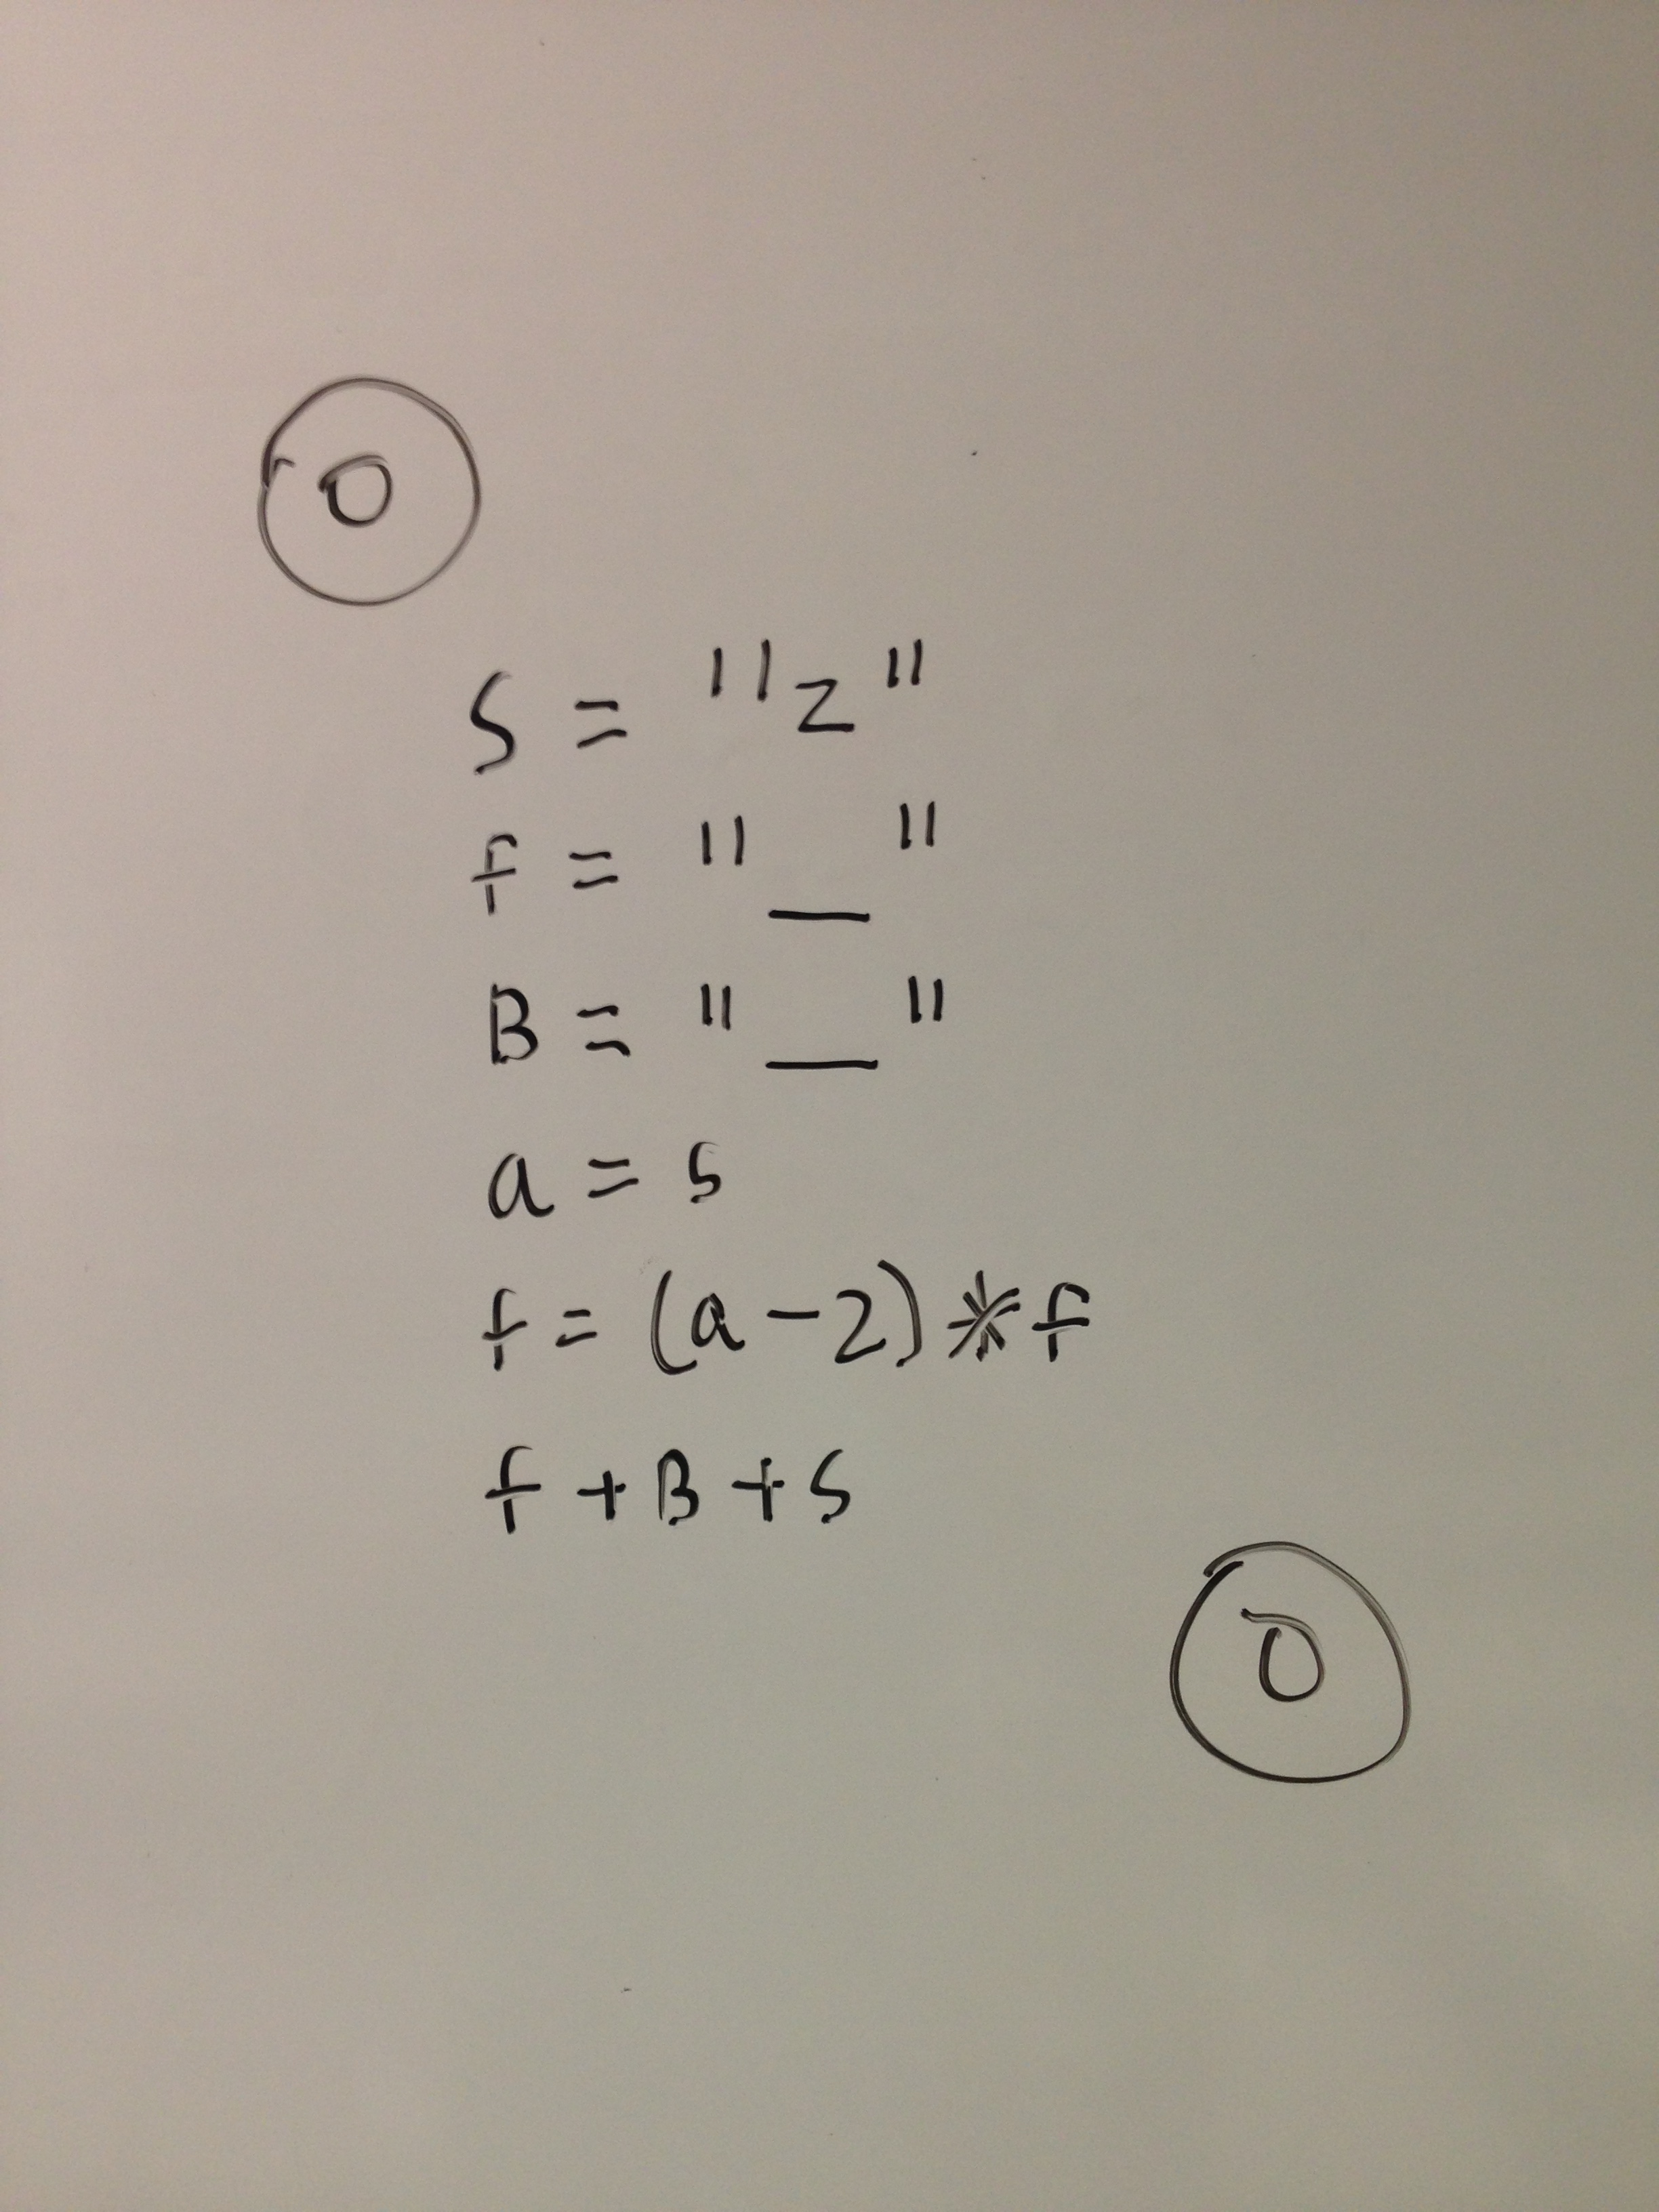 0
S = "z"
f = "_"
B = "_"
a = 5
f = (a-2)*f
f+B+S
0